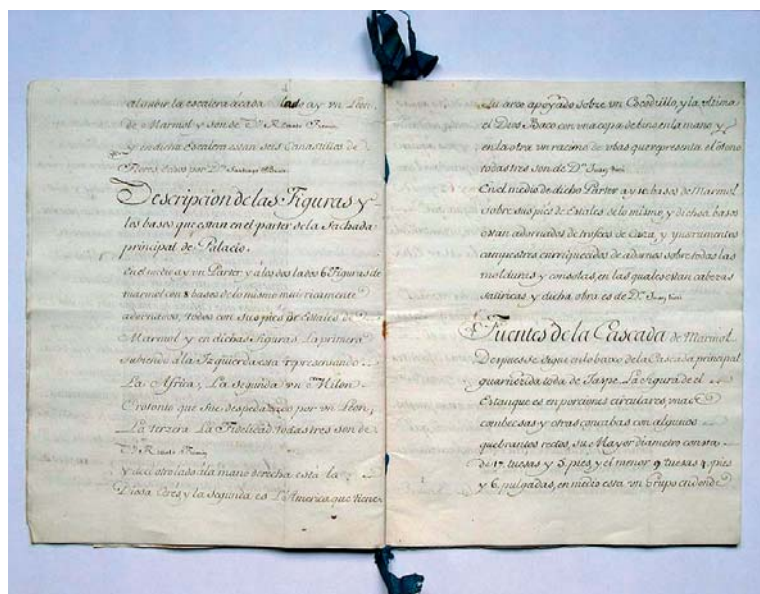 al subir la escalera ácada lado ay vn Leon,
de Marmol y son de Dn. Renato Fremin
y en dicha Escalera estan seis Canastillos de
Flores echos por Dn. Santiago
Descripcion de las Figuras y
los basos que estan en el parter de la Fachada
principal de Palacio.
en el medio ay vn Parter y á los dos lados 6 Figuras de
marmol con 8 basos de lo mismo mui ricamente
adornados, todos con sus piés de Estales de
Marmol y en dichas figuras La primera
subiendo á la Izquierda esta representando
La Africa, La Segunda vn Milon
Crotonio que fue despedazado por vn Leon,
La terzera La Fidelidad, todas tres son de
Dn. Renato Fremin
y del otro lado á la mano derecha está la
Diosa Cerés y la segunda es L'America que tiene
su arco apoyado sobre vn Cocodrillo, y la vltima
el Dios Baco con vna copa de bino en la mano y
en la otra vn racimo de vbas que representa el otono
todas tres son de Dn. Juan
En el medio de dicho Parter ay 16 basos de Marmol
sobre sus piés de Estales de lo mismo, y dichos basos
estan adornados de trofeos de Caza, y ynstrumentos
campestres enrriquecidos de adornos sobre todas las
molduras y consolas, en las quales estan cabezas
satiricas y dicha obra es de Dn. Juan
Fuentes de la Cascada de Marmol
Despues se sigue en lo baxo de la Cascada principal
guarnezida toda de Jaspe. La figura de el
Estanque es en porciones circulares, vnas
combecsas y otras concabas con algunos
quebrantos rectos, su Mayor diametro consta
de 17 tuesas y 5 pies, y el menor 9 tuesas 4 pies
y 6 pulgadas, en medio esta vn Grupo en donde